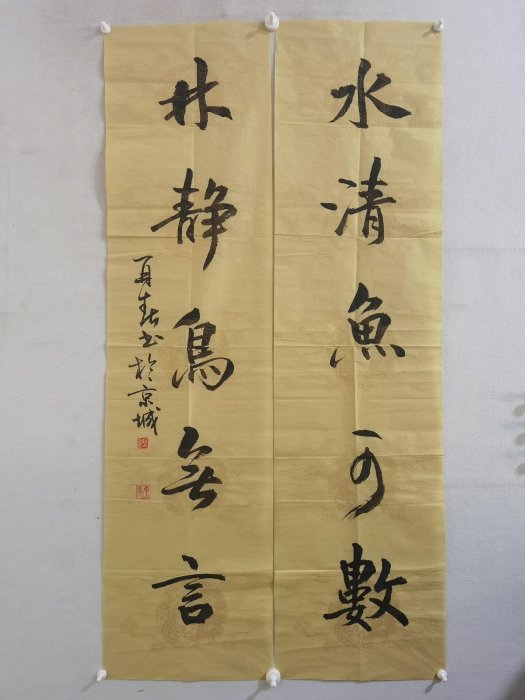 水清魚可數
林靜鳥無言
書於京城